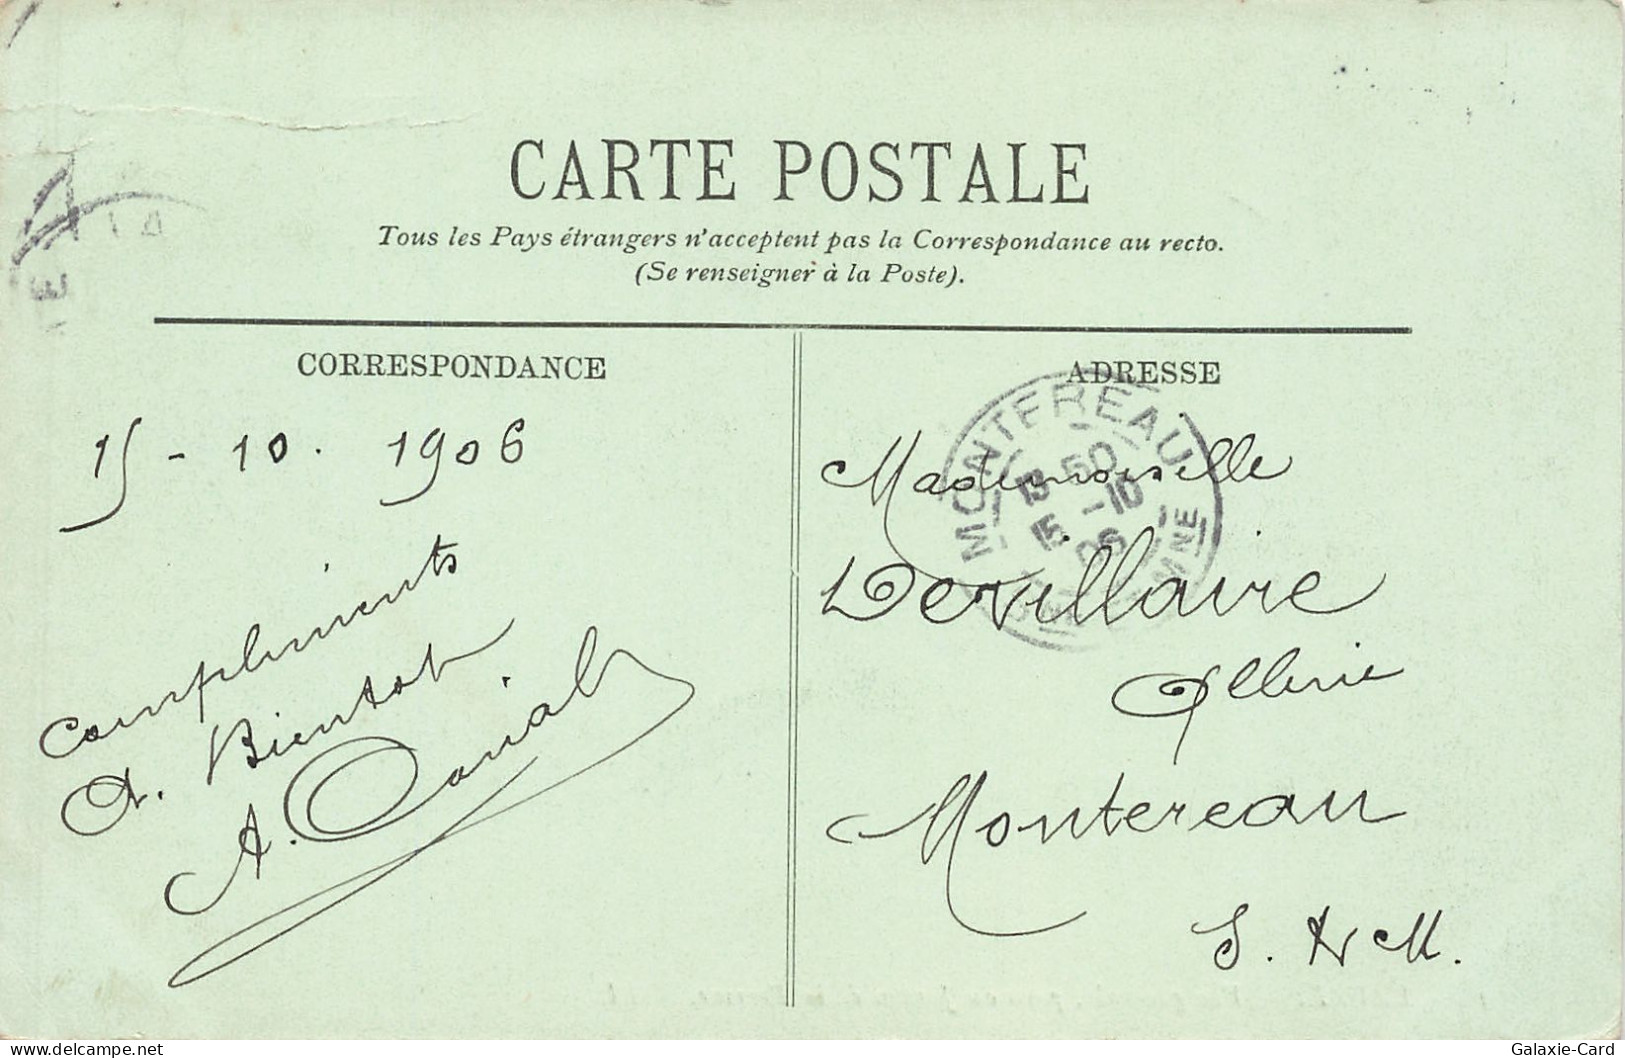 CARTE POSTALE
Tous les Pays étrangers n'acceptent pas la Correspondance au recto.
(Se renseigner à la Poste).
CORRESPONDANCE
15 - 10. 1906
Compliments
A. Bientot
A.
ADRESSE
MONTEREAU
13 50
15 -10
06
MNE
Mademoiselle
Devillaire
Montereau
S. & M.
delcampe.net
Galaxie-Card